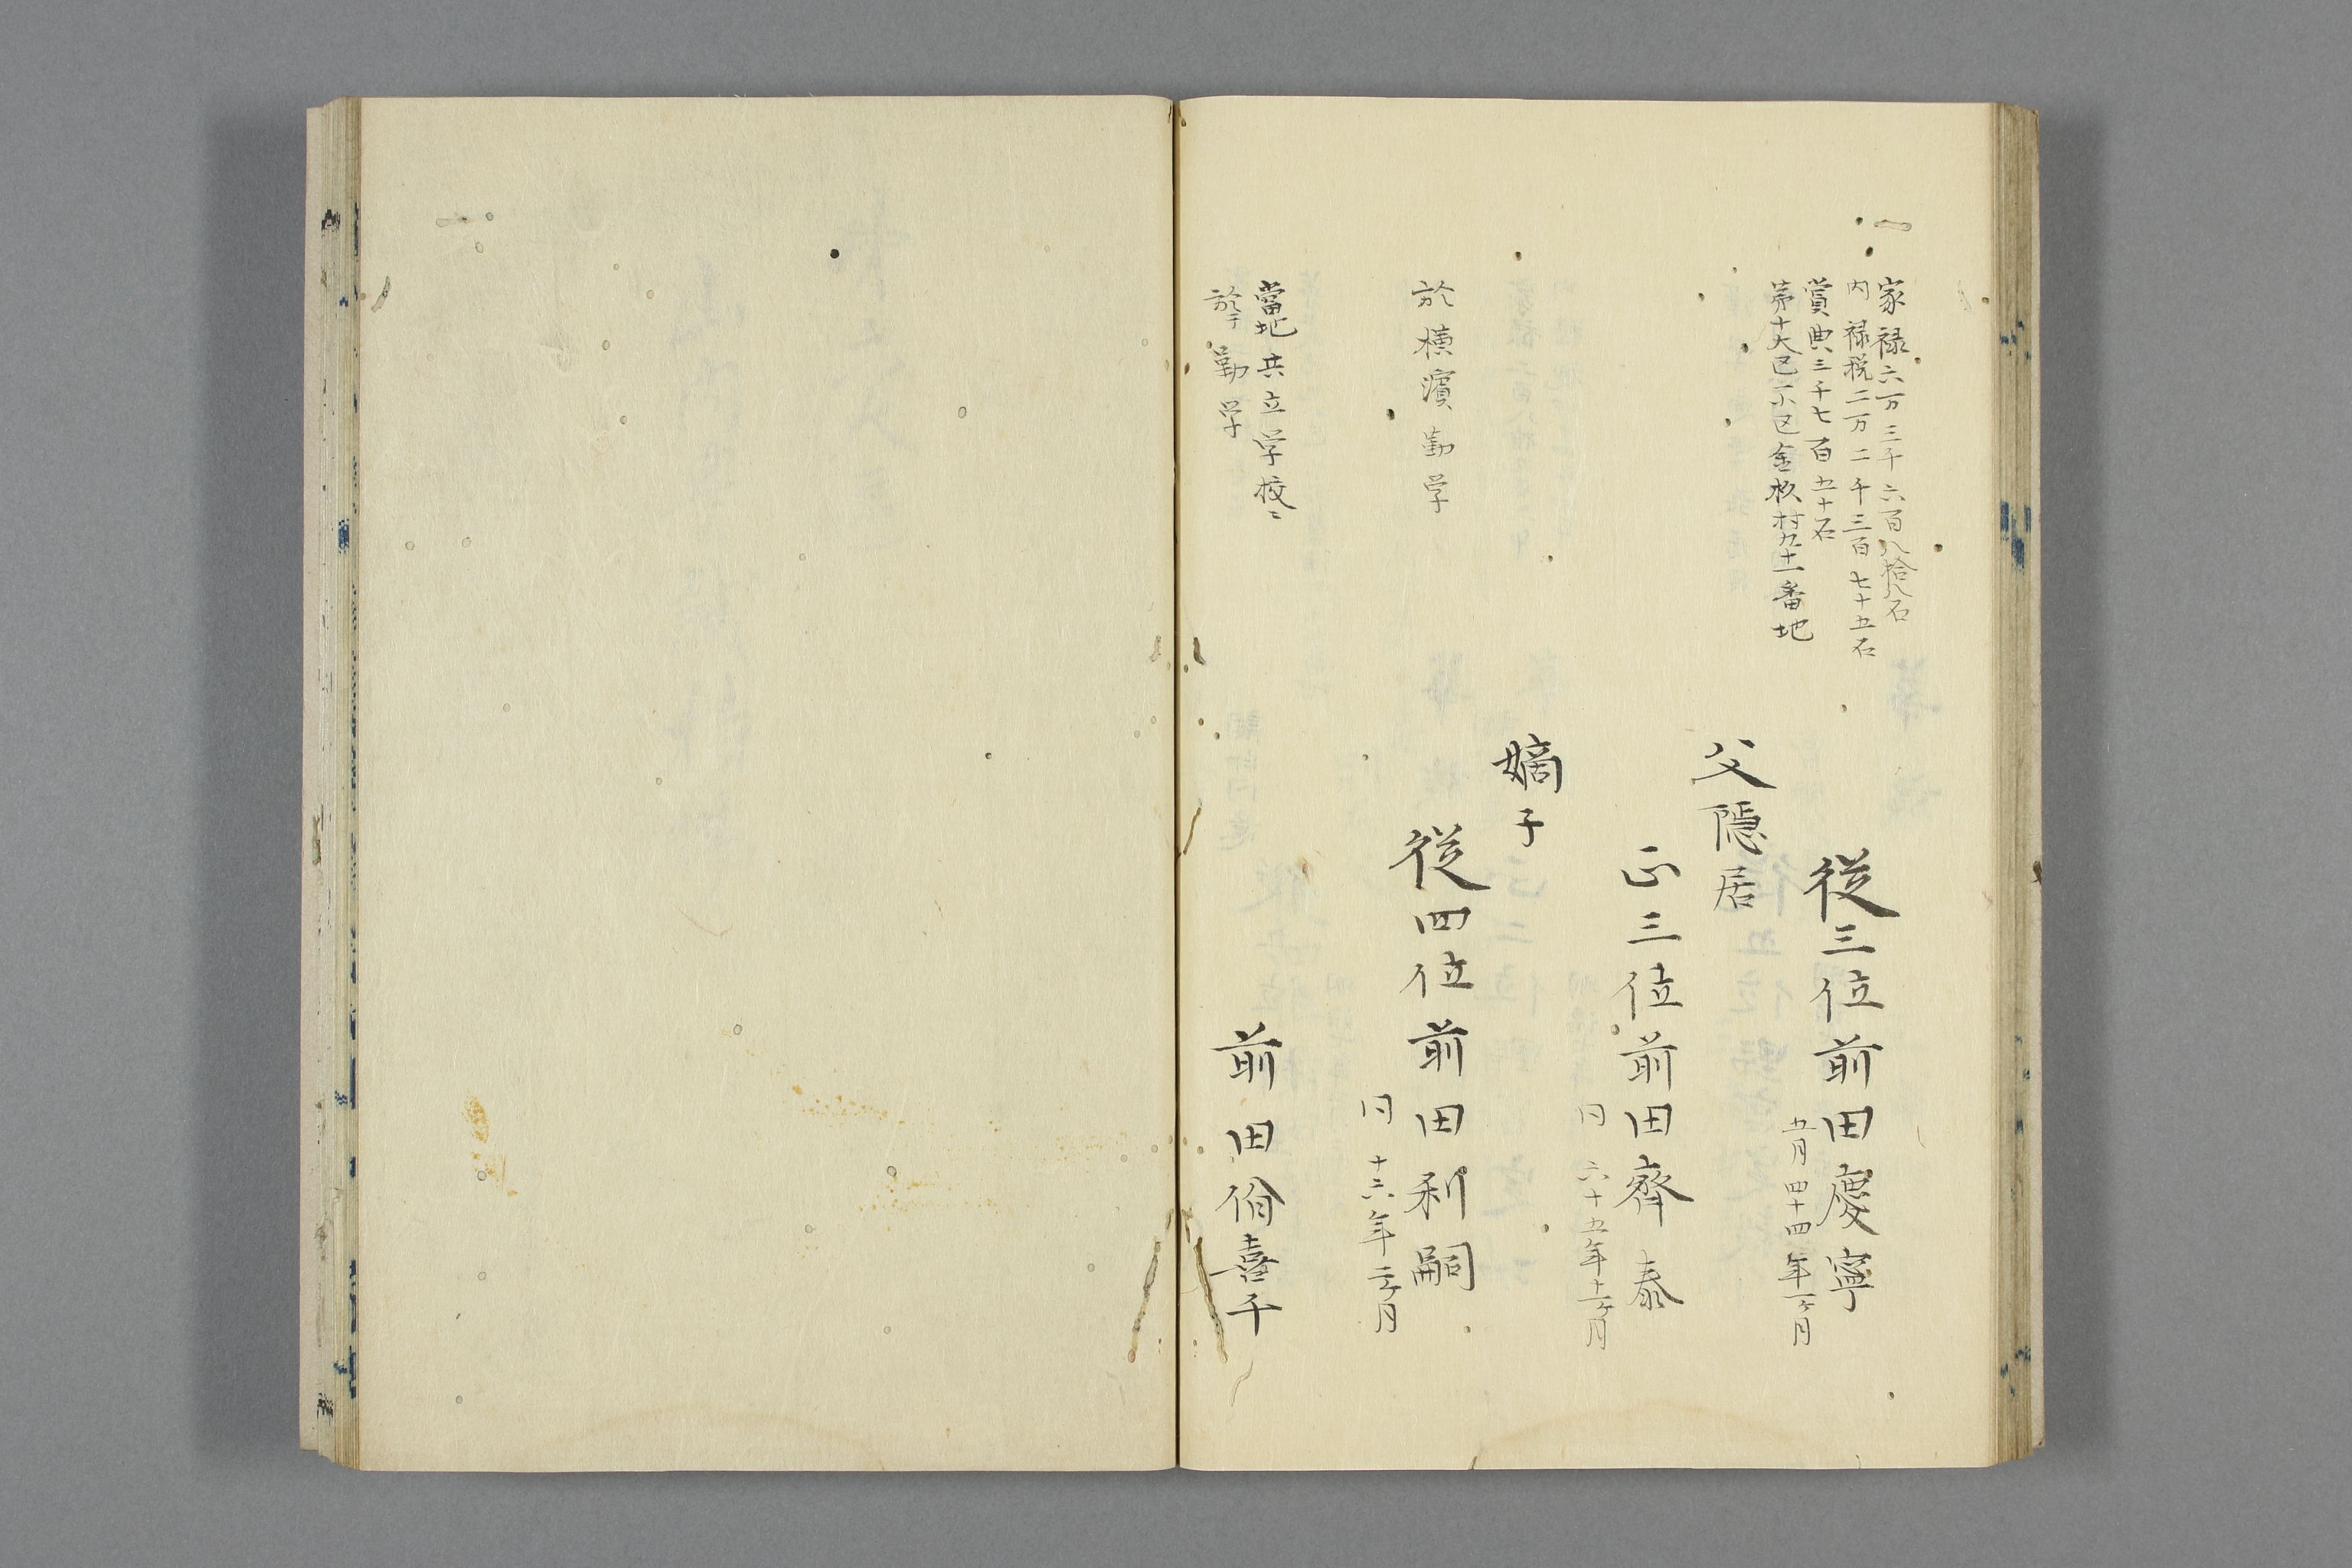 一
家禄六万三千六百八拾八石
内禄税二万二千三百七十五石
賞典三千七百五十石
第十大区一小区金杉村九十一番地
従三位前田慶寧
五月四十四年一ケ月
父隠居
正三位前田齊泰
同六十五年十一ケ月
嫡子
於横濱勤学
従四位前田利嗣
同十六年二ケ月
當地共立学校ニ
於テ勤学
前田喜千